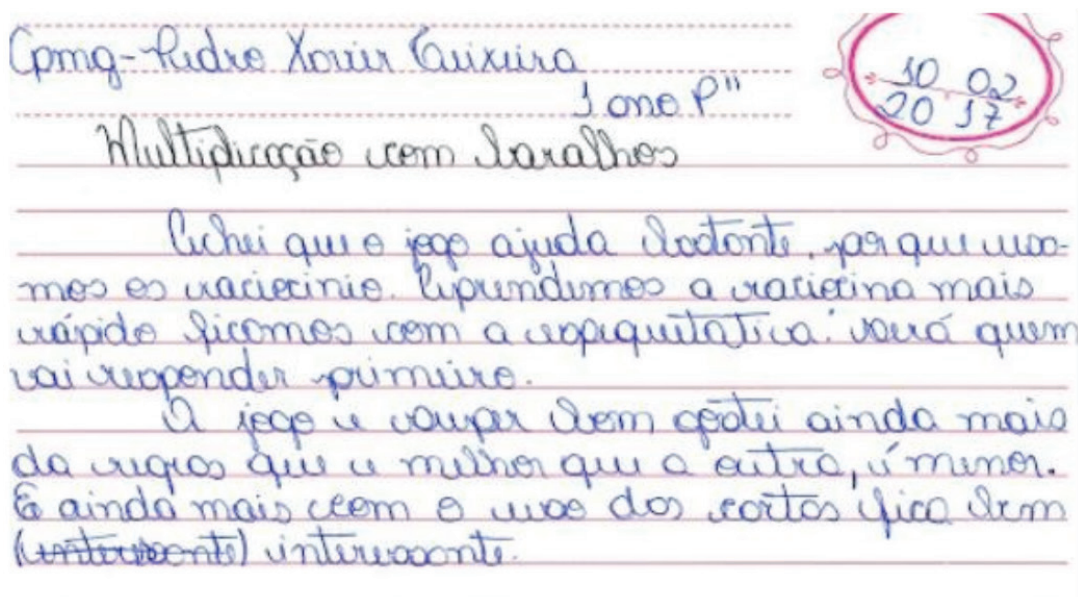 Cpmg-Pedro Xavier Teixeira
1 ano P"
10 02
20 17
Multiplicação com baralhos
Achei que o jogo ajuda bastante, por que usa-
mos os raciocinio. Aprendemos a raciocina mais
rápido ficamos com a espequitativa: será quem
vai responder primeiro.
O jogo e super bem gostei ainda mais
da regras que e melhor que a outra, é menor.
E ainda mais com o uso das cartas fica bem
(interessante) interessante.